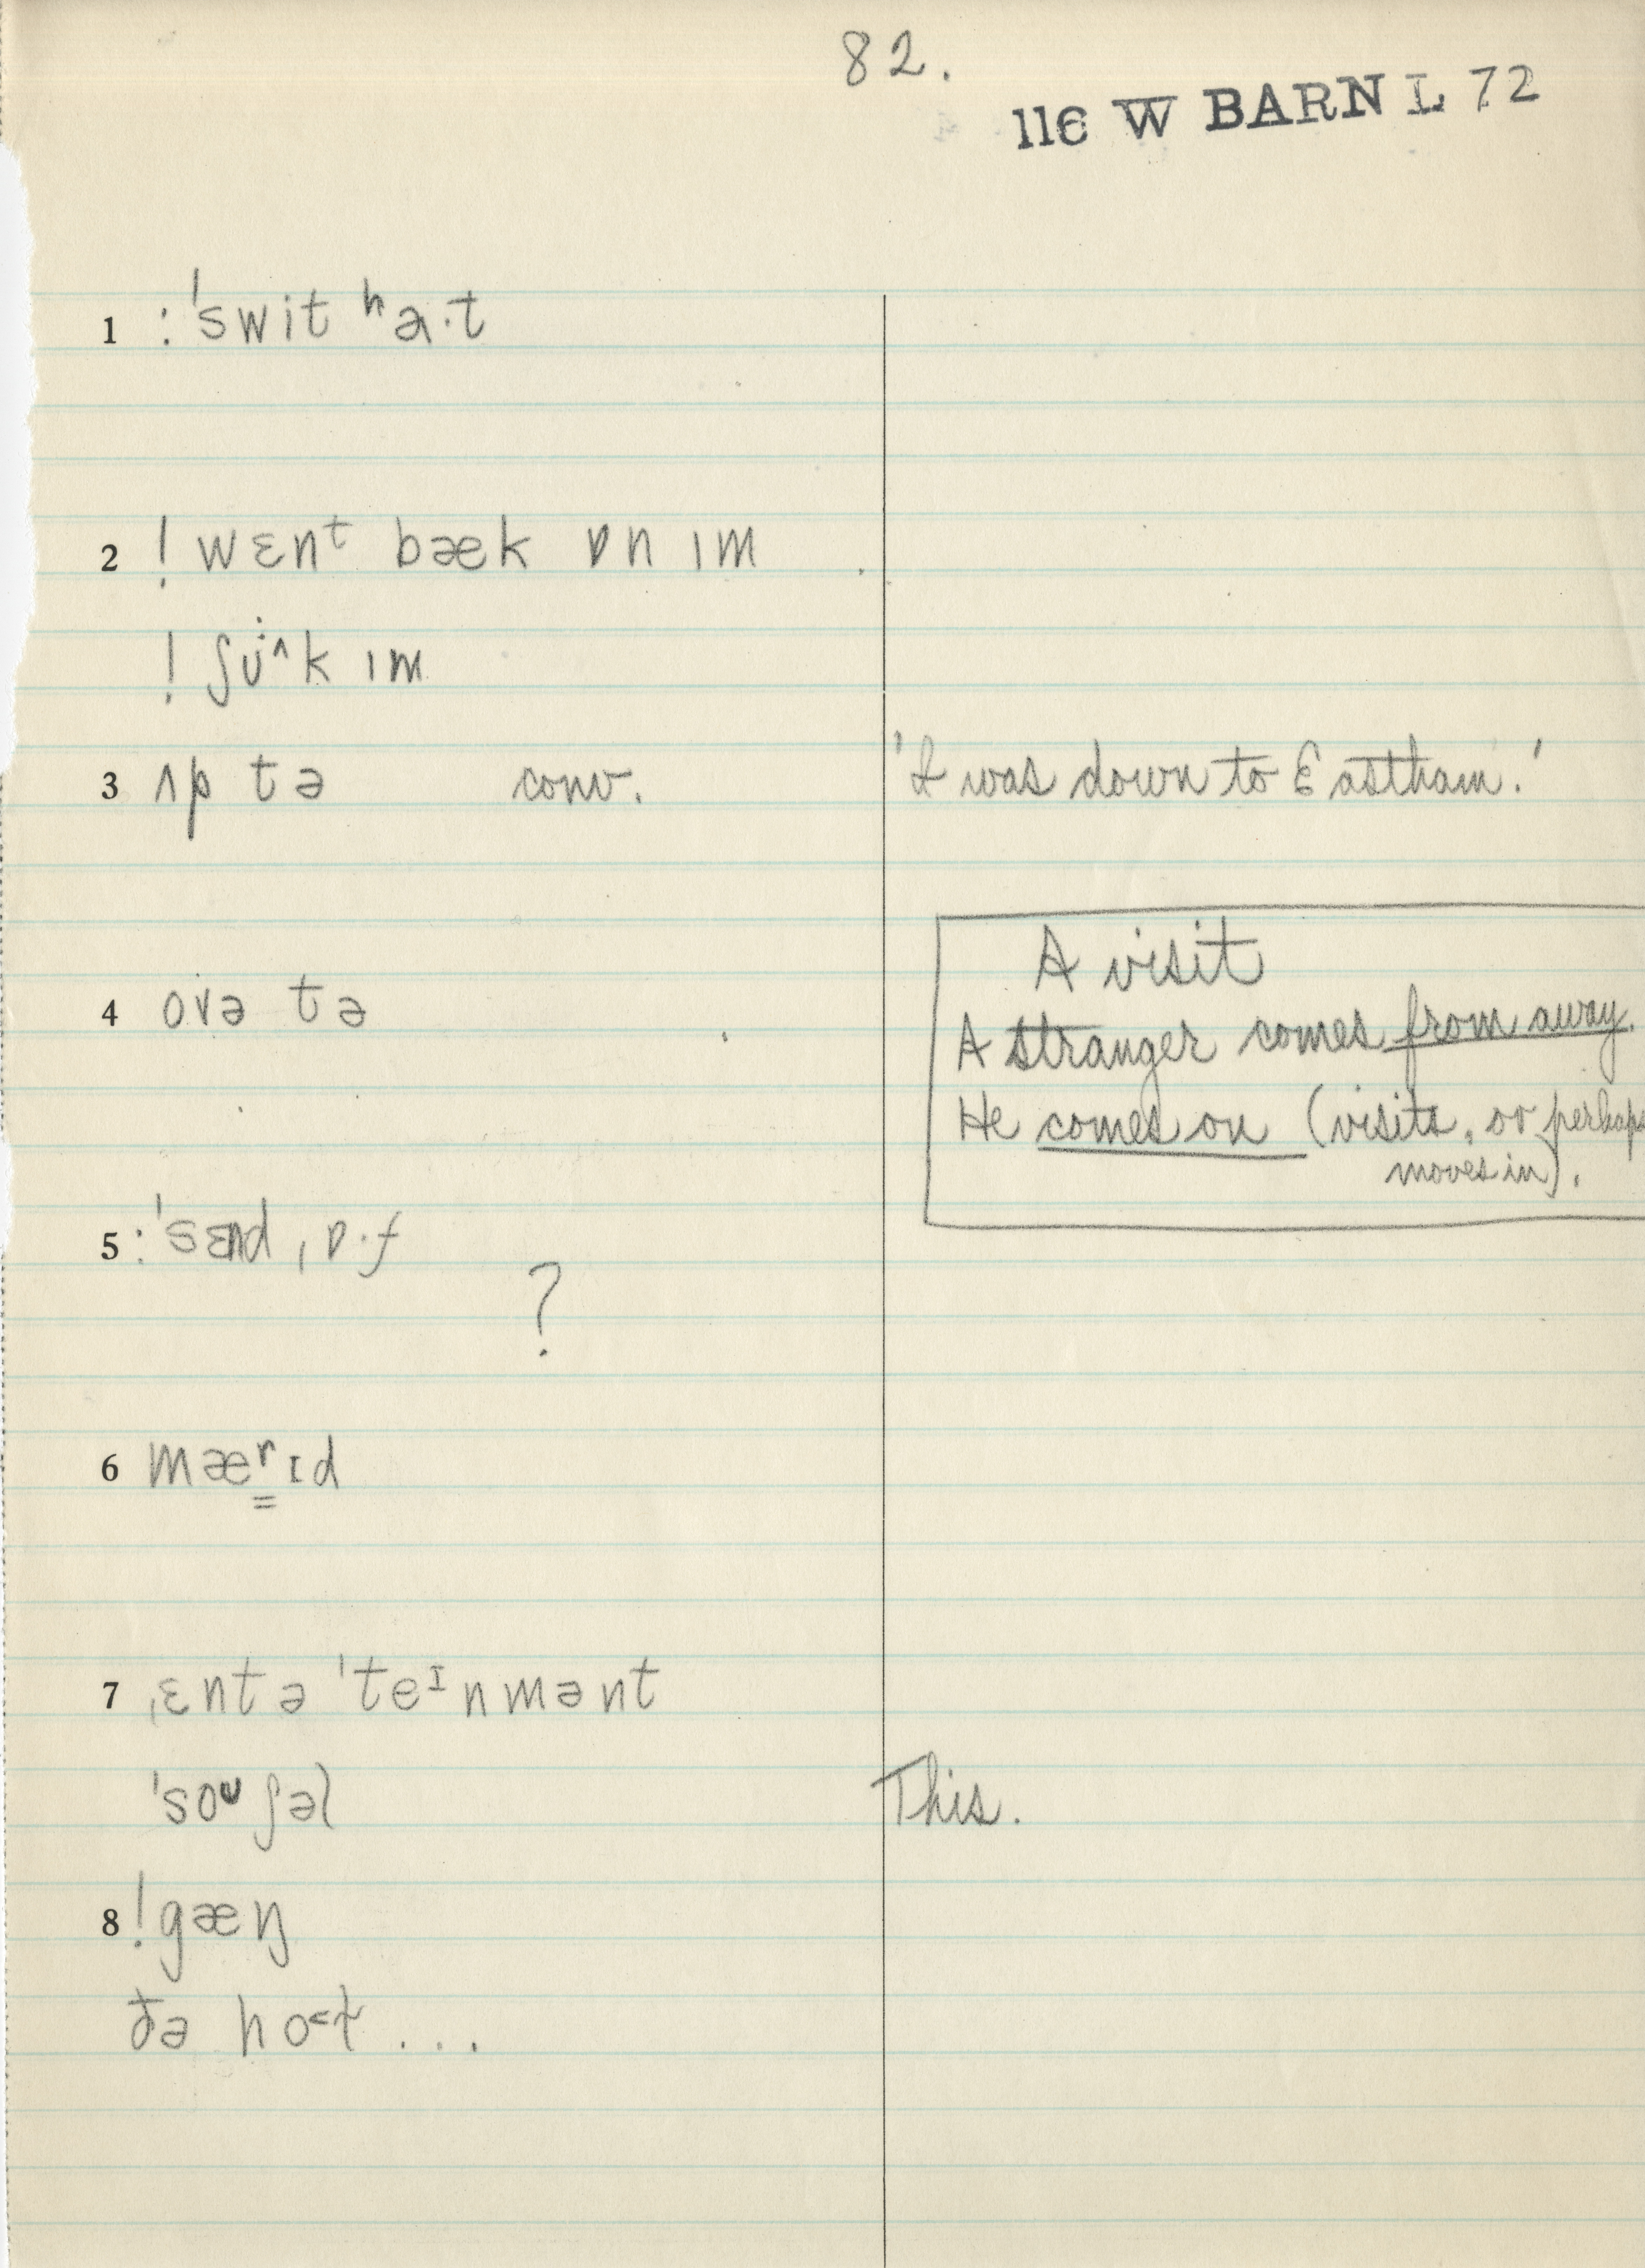 82.
116 W BARN L 72
1 : ˈswit ʰa·t
2 ! wɛnᵗ bæk ɒn ɪm
! ʃʊ̇^k ɪm
3 ʌp tə conv. 'I was down to Eastham.'
A visit
4 ovə tə
A stranger comes from away.
He comes on (visits, or perhaps
moves in).
5 : ˈsɛnd ˌɒ·f
?
6 mæʳɪd
7 ˌɛntəˈteᴵnmənt
ˈsoᶷʃəl This.
8 ! gæŋ
ðə ho˂t ...